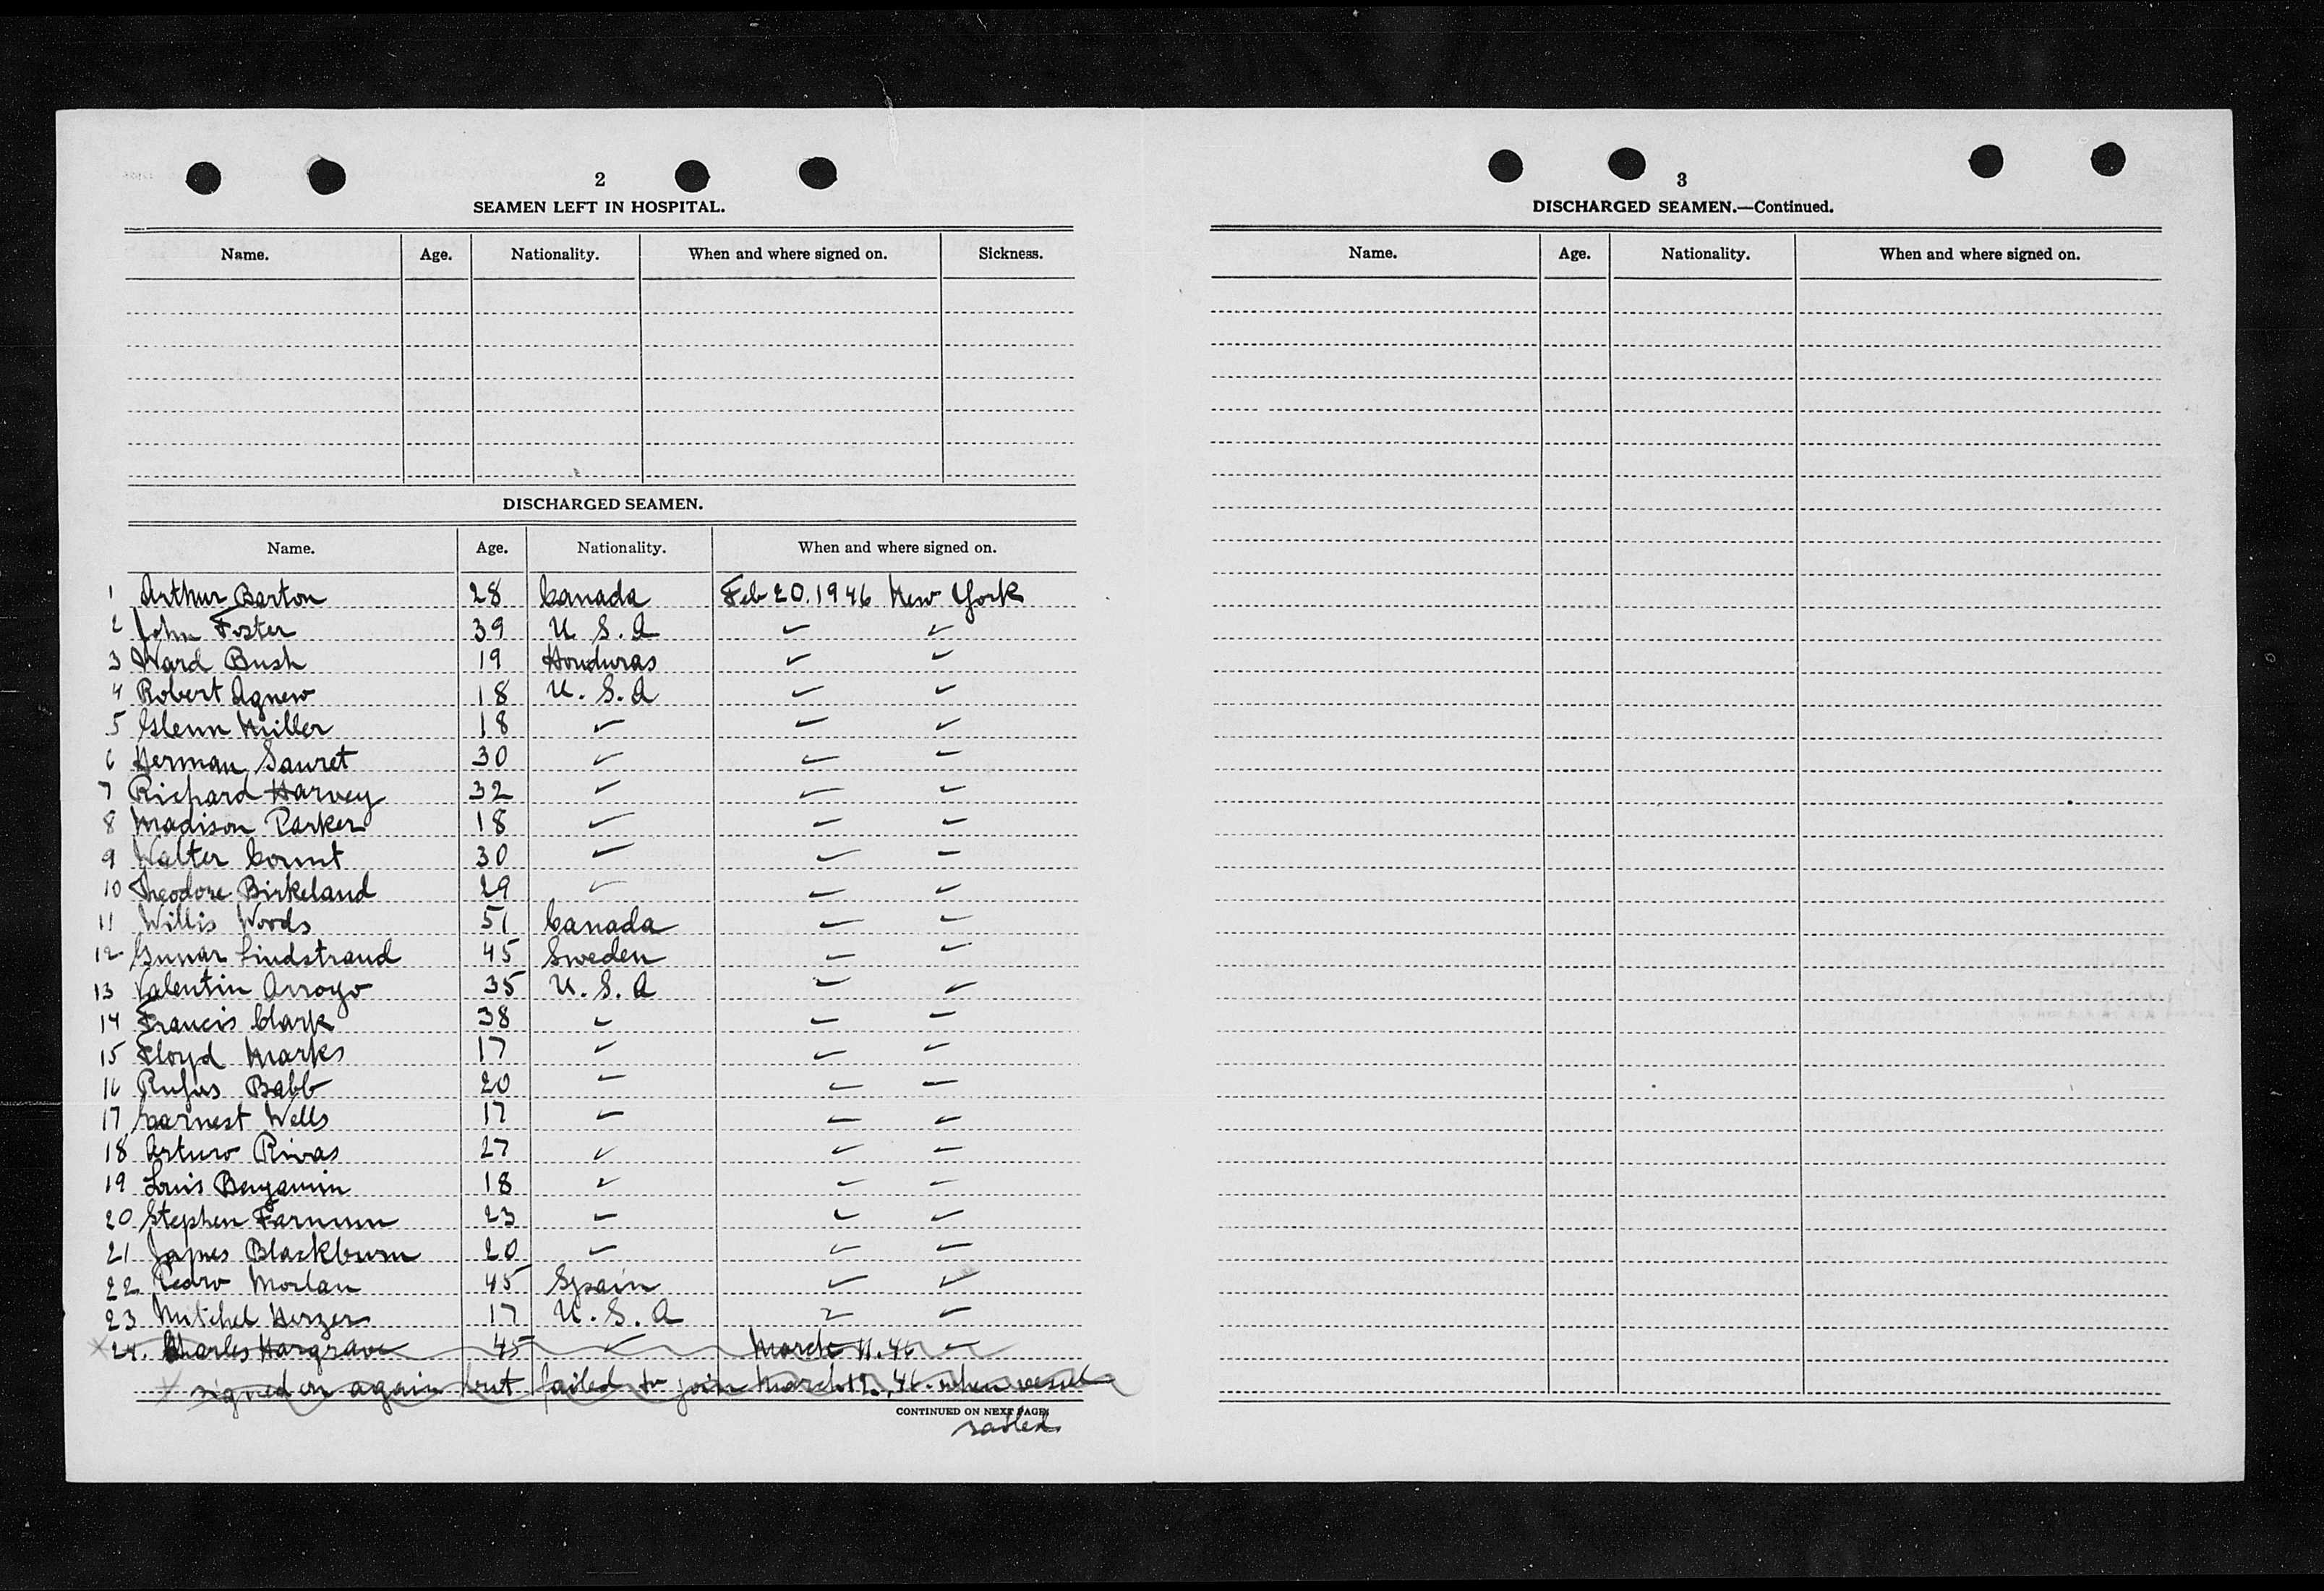 2
SEAMEN LEFT IN HOSPITAL.
Name. Age. Nationality. When and where signed on. Sickness.
DISCHARGED SEAMEN.
Name. Age. Nationality. When and where signed on.
1 Arthur Barton 28 Canada Feb 20.1946 New York
2 John Foster 39 U.S.A ✓ ✓
3 Ward Bush 19 Honduras ✓ ✓
4 Robert Agnew 18 U.S.A ✓ ✓
5 Glenn Miller 18 ✓ ✓ ✓
6 Herman Sauret 30 ✓ ✓ ✓
7 Richard Harvey 32 ✓ ✓ ✓
8 Madison Parker 18 ✓ ✓ ✓
9 Walter Count 30 ✓ ✓ ✓
10 Theodore Birkeland 29 ✓ ✓ ✓
11 Willis Woods 51 Canada ✓ ✓
12 Gunnar Lindstrand 45 Sweden ✓ ✓
13 Valentin Arroyo 35 U.S.A ✓ ✓
14 Francis Clark 38 ✓ ✓ ✓
15 Floyd Marks 17 ✓ ✓ ✓
16 Rufus Babb 20 ✓ ✓ ✓
17 Earnest Wells 17 ✓ ✓ ✓
18 Arturo Rivas 27 ✓ ✓ ✓
19 Louis Benjamin 18 ✓ ✓ ✓
20 Stephen Farnum 23 ✓ ✓ ✓
21 James Blackburn 20 ✓ ✓ ✓
22 Pedro Morlan 45 Spain ✓ ✓
23 Mitchel Herzer 17 U.S.A ✓ ✓
x 24. Charles Hargrave 45 ✓ March 11.46 ✓
x signed on again but failed to join March 12, 46. when vessel
CONTINUED ON NEXT PAGE.
sailed
3
DISCHARGED SEAMEN.—Continued.
Name. Age. Nationality. When and where signed on.